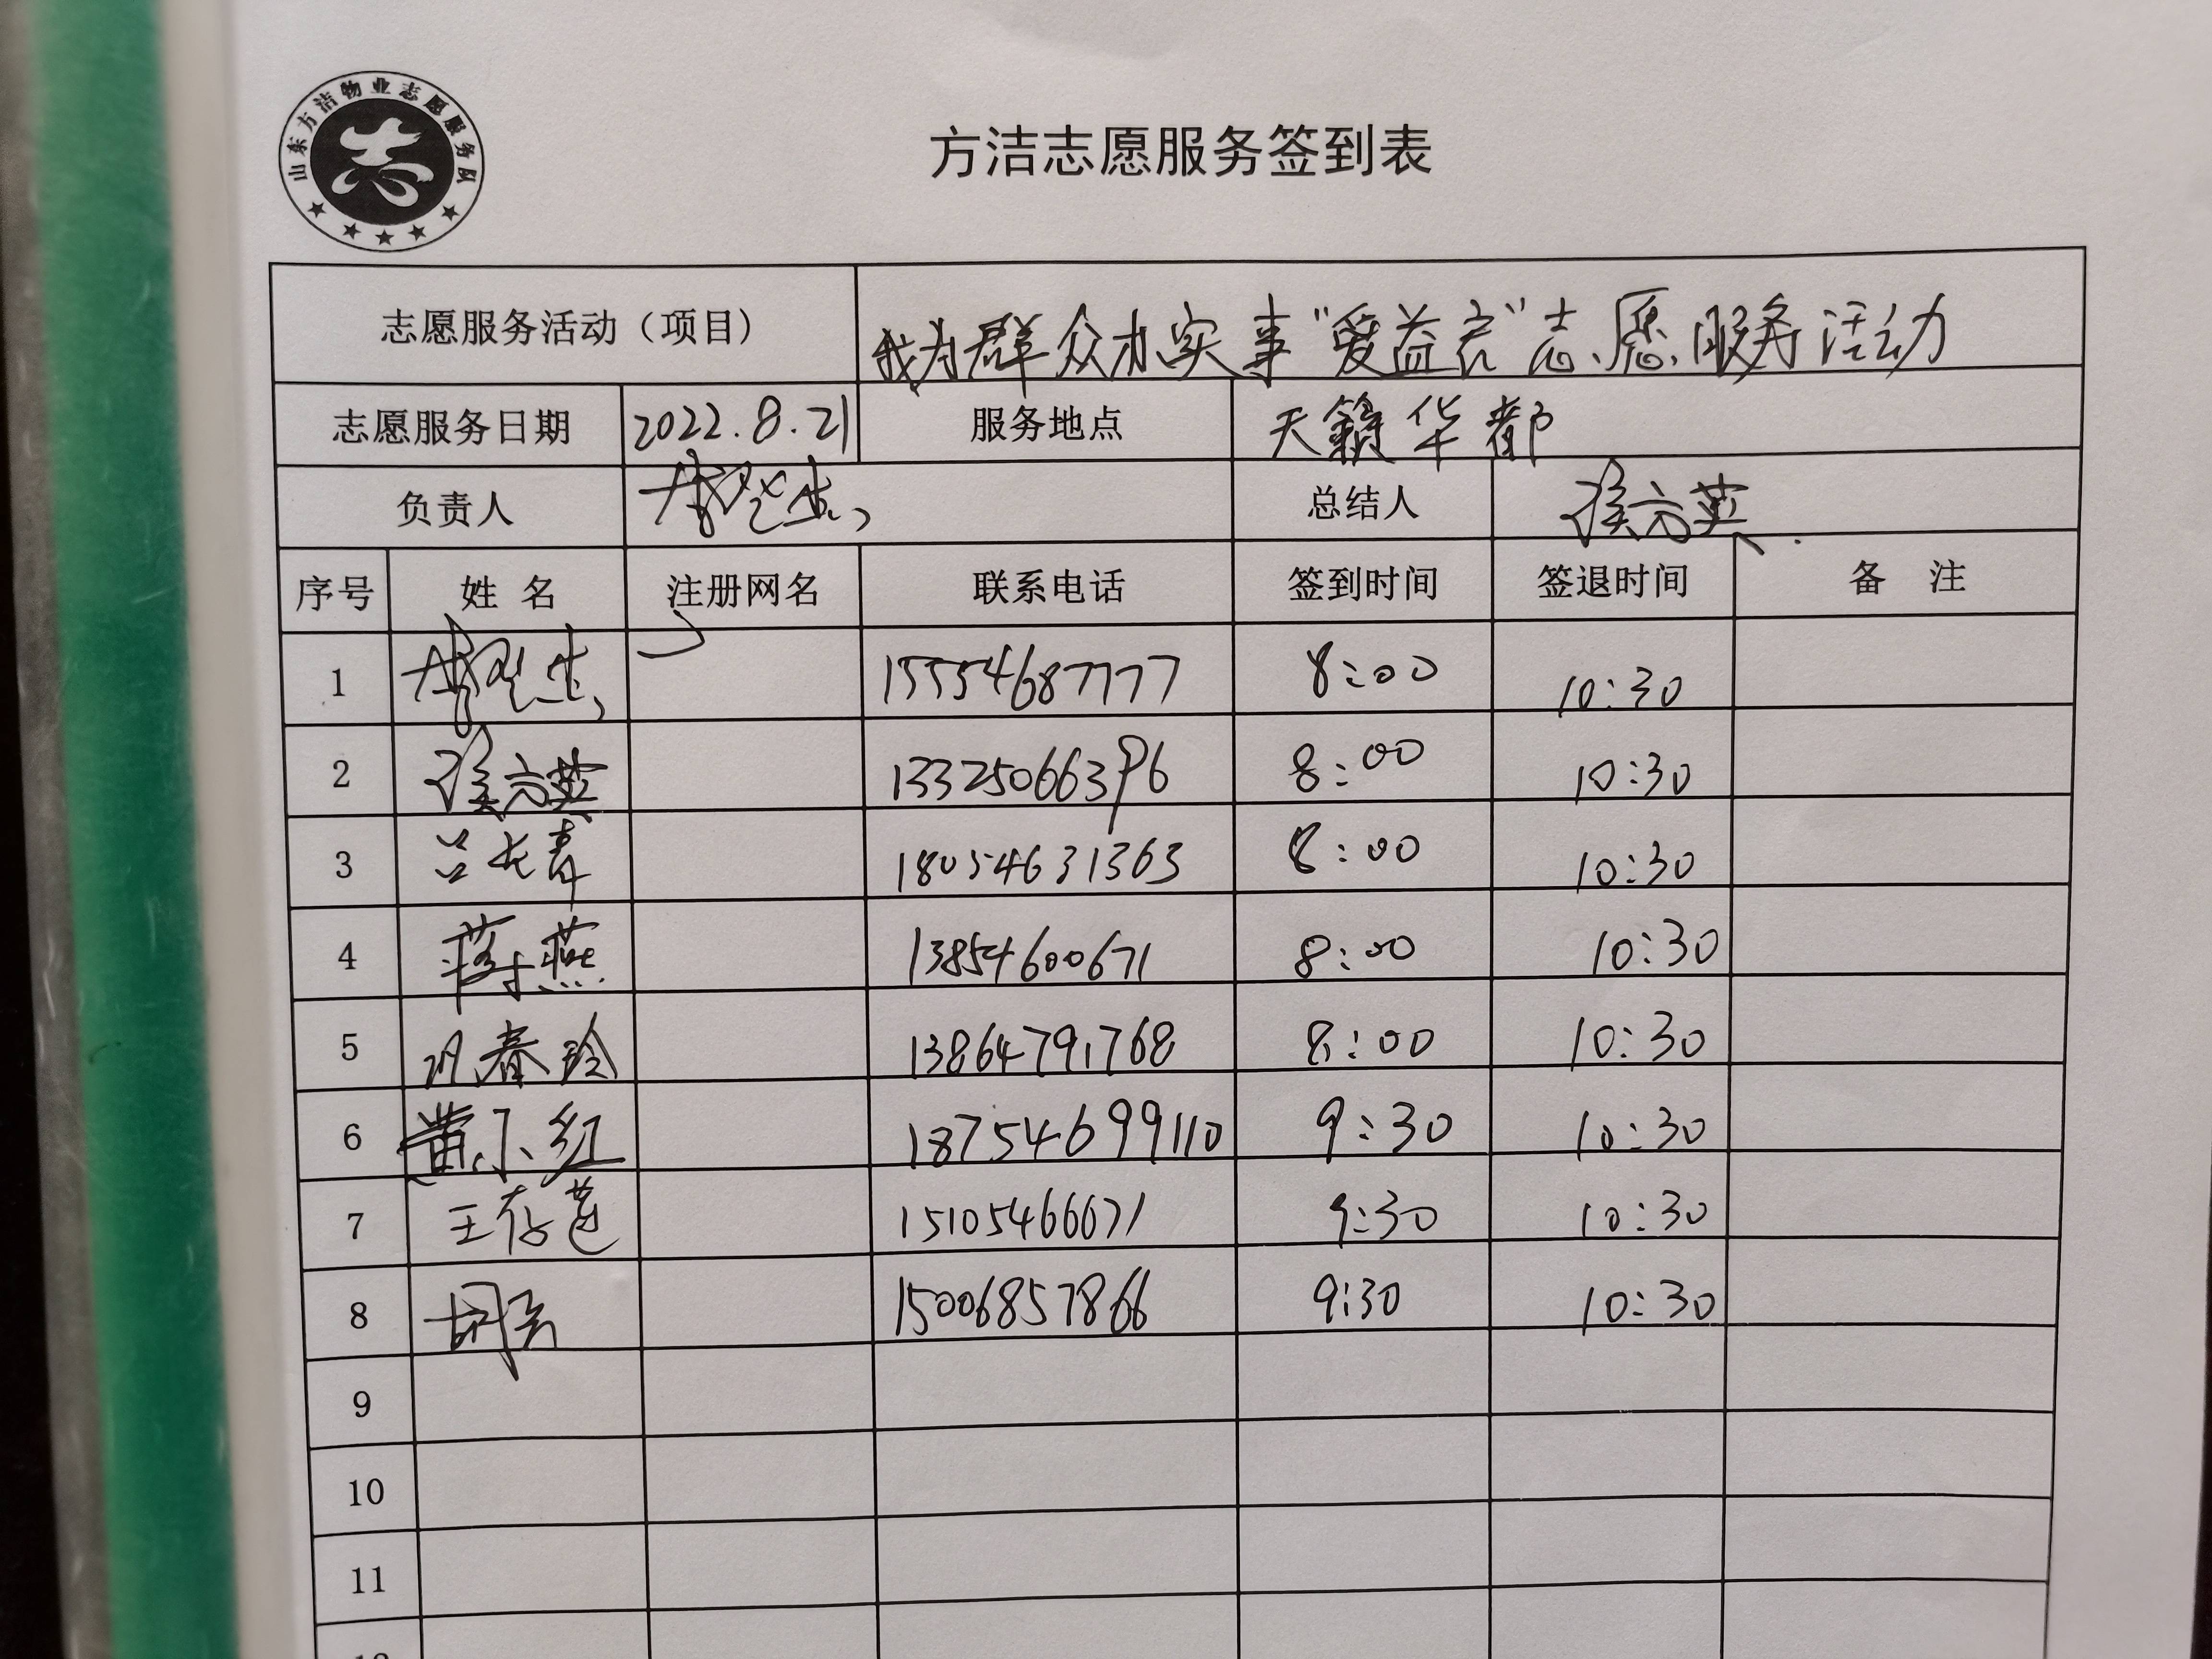 山东方洁物业志愿服务队
志
方洁志愿服务签到表
志愿服务活动（项目） 我为群众办实事“爱益家”志愿服务活动
志愿服务日期 2022.8.21 服务地点 天籁华都
负责人 总结人
序号 姓名 注册网名 联系电话 签到时间 签退时间 备注
1 15554687777 8:00 10:30
2 13325066396 8:00 10:30
3 吕长青 18054631363 8:00 10:30
4 蒋燕 13854600671 8:00 10:30
5 巩春玲 13864791768 8:00 10:30
6 黄小红 18754699110 9:30 10:30
7 王存莲 15105466671 9:30 10:30
8 15006857866 9:30 10:30
9
10
11